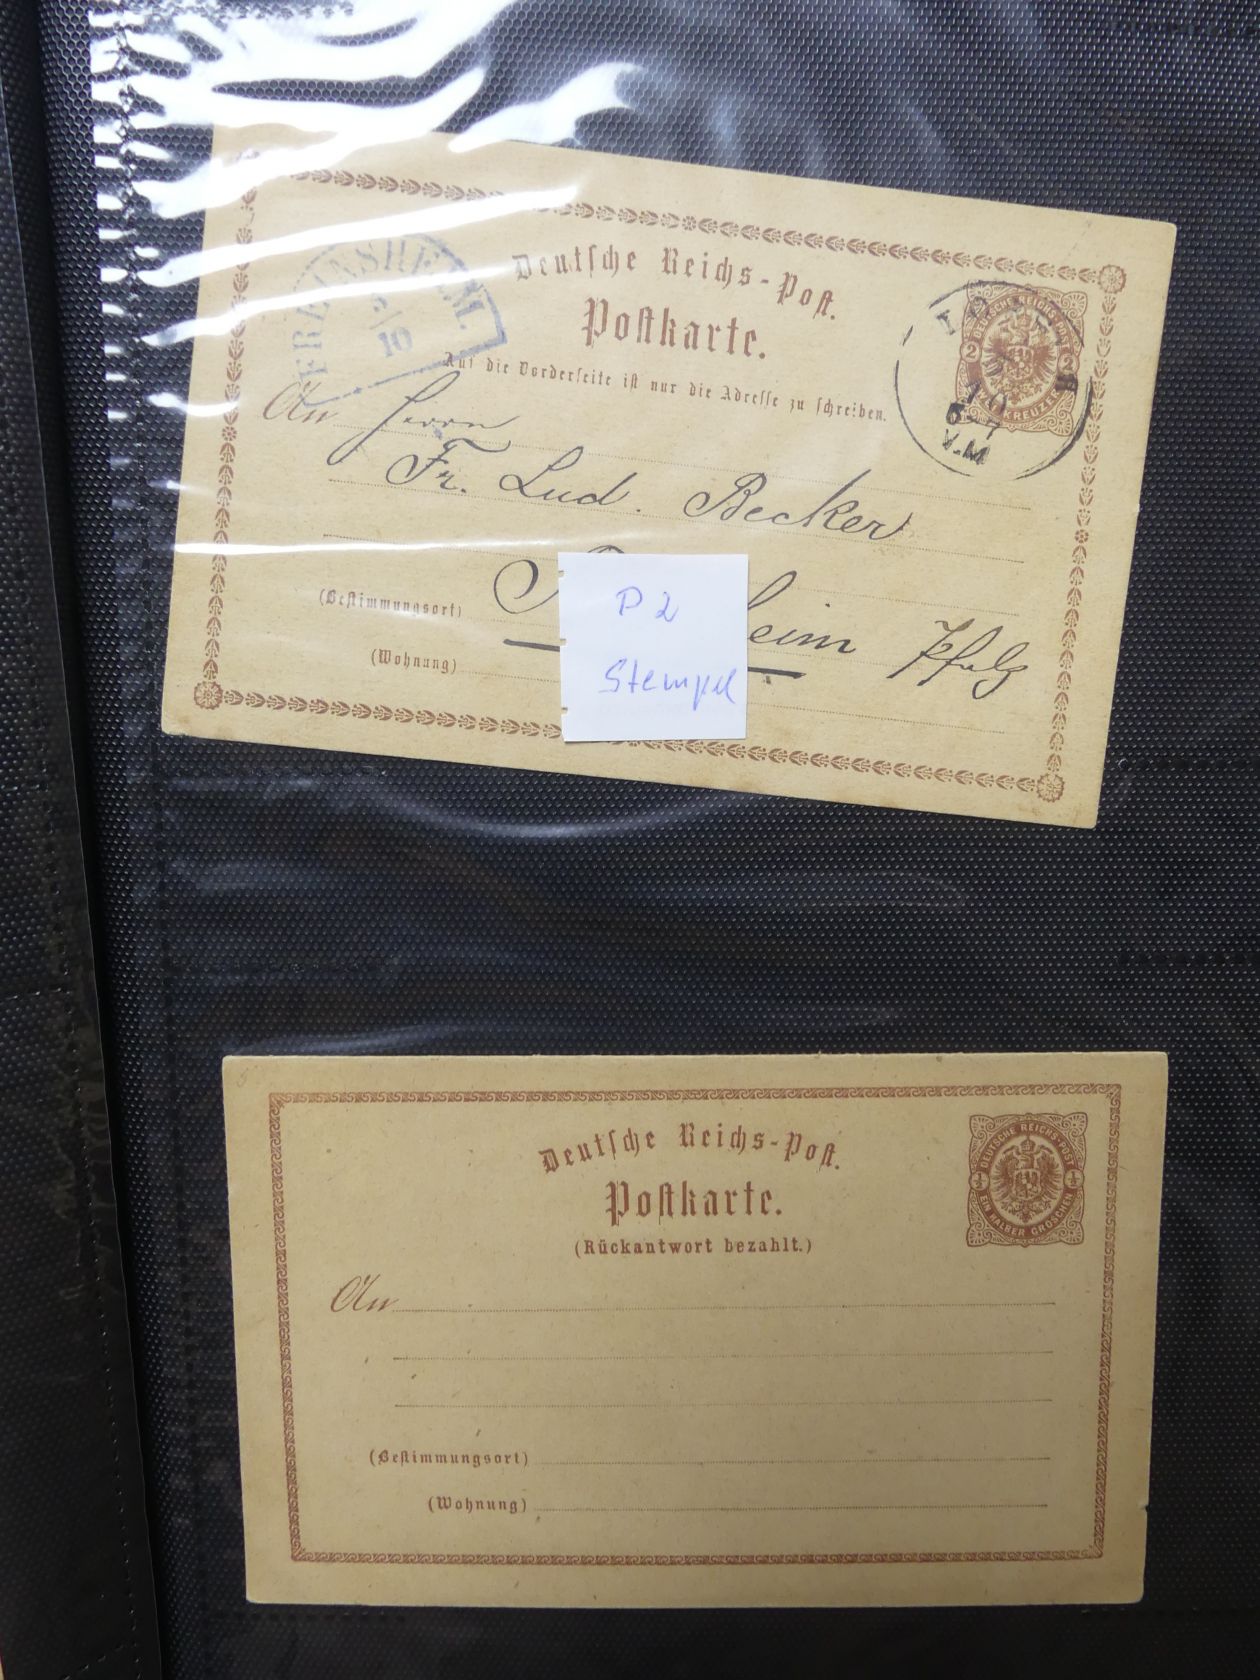 Deutsche Reichs-Post.
Postkarte.
Auf die Vorderseite ist nur die Adresse zu schreiben.
FREINSHEIM.
10
DEUTSCHE REICHS-POST
2 2
KREUZER
10
6-7
V.M
An Herrn
Fr. Lud. Becker
eim Pfalz
(Bestimmungsort)
(Wohnung)
P 2
Stempel
Deutsche Reichs-Post.
Postkarte.
(Rückantwort bezahlt.)
DEUTSCHE REICHS-POST
½ ½
EIN HALBER GROSCHEN
An
(Bestimmungsort)
(Wohnung)